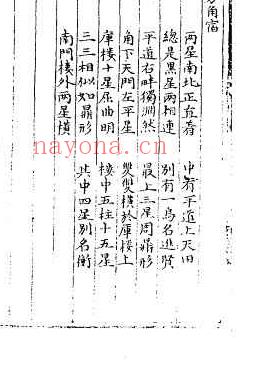 角宿
两星南北正直着 中有平道上天田
總是黑星两相連 別有一烏名進賢
平道右畔獨淵然 最上三星周鼎形
角下天門左平星 雙雙橫於庫楼上
庫楼十星屈曲明 楼中五柱十五星
三三相似如鼎形 其中四星別名衡
南門楼外两星橫
nayona.cn